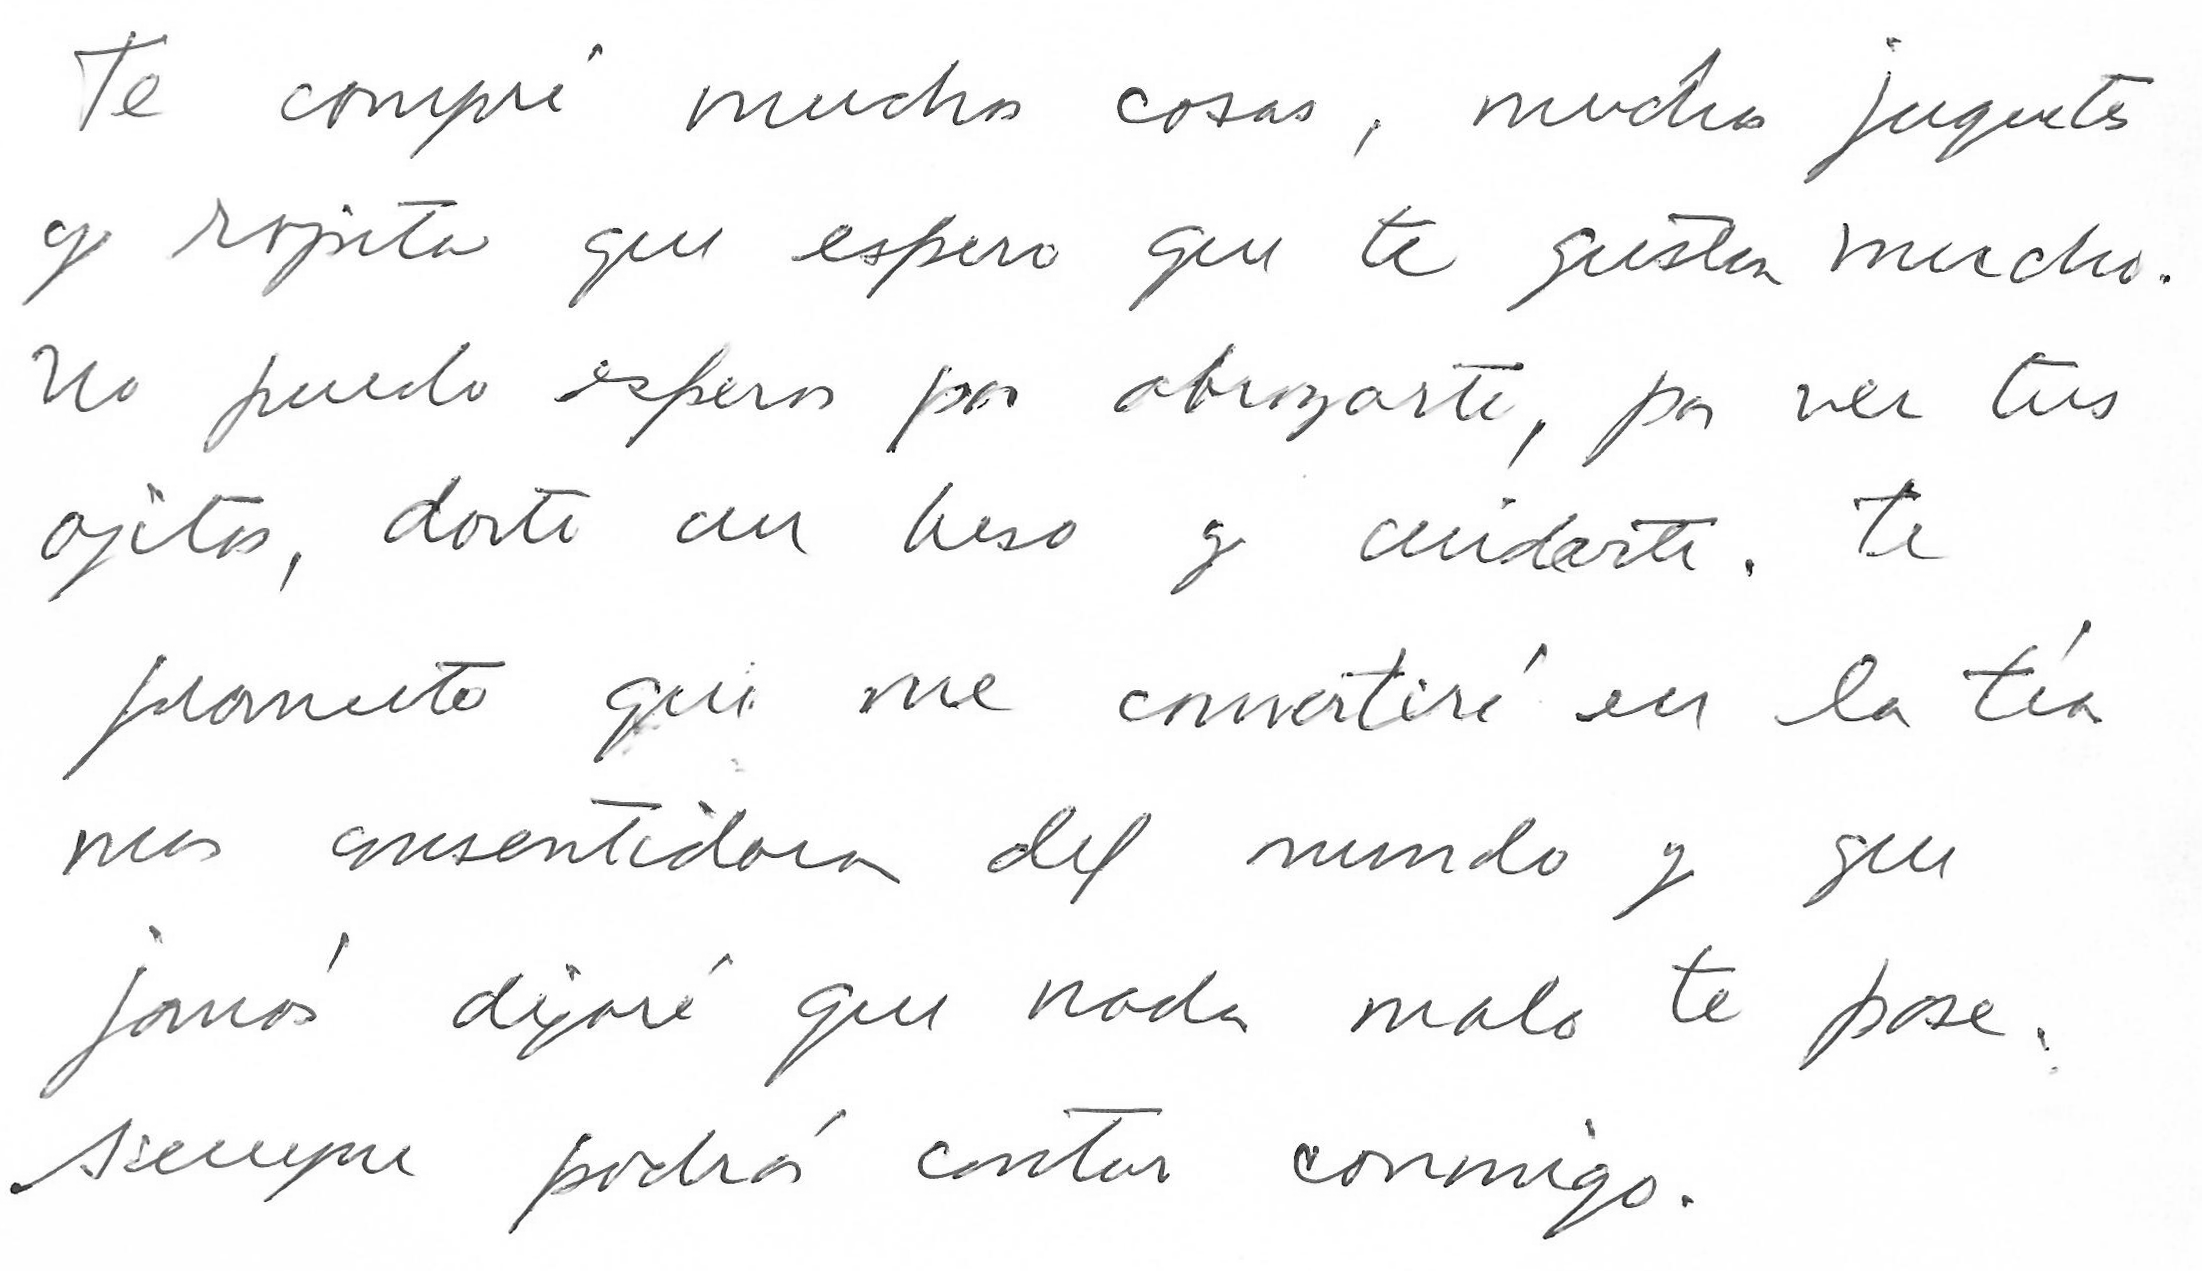 Te compré muchas cosas, muchos juguetes
y ropita que espero que te gusten mucho.
No puedo esperar por abrazarte, por ver tus
ojitos, darte un beso y cuidarte. Te
prometo que me convertiré en la tía
mas consentidora del mundo y que
jamás dejaré que nada malo te pase.
Siempre podrás contar conmigo.